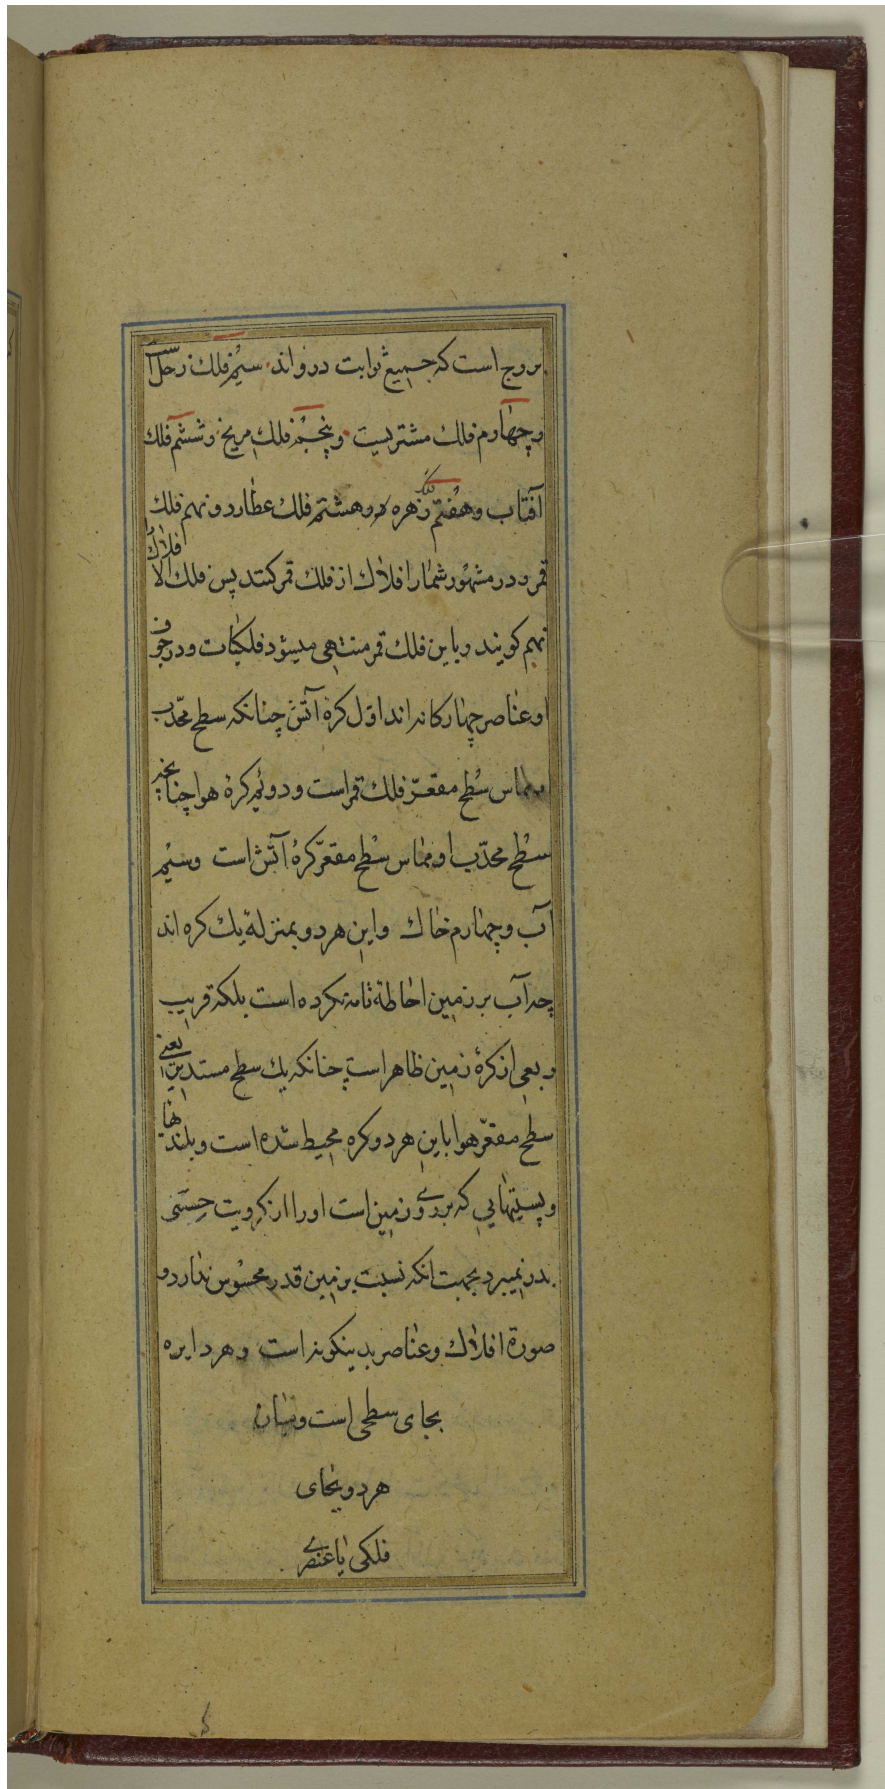 بروج است که جمیع ثوابت در واند سیُم فلک زحل است
وچهارم فلك مشتریست وپنجم فلك مریخ وششم فلك
آفتاب وهفتم فلك زهره وهشتم فلك عطارد ونهم فلك
قمر ودر مشهور شمار افلاك از فلك قمر کنند پس فلك الافلاك را
نهم کویند وباین فلك قمر منتهی میشود فلکیات ودرجوف
او عناصر چهارکانه اند اوّل کرهٔ آتش چنانکه سطح محدّب
او مماس سطح مقعّر فلك قمر است ودوئیم کرهٔ هوا چنانچه
سطح محدّب او مماس سطح مقعّر کرهٔ آتش است وسیُم
آب وچهارم خاك واین هردو بمنزلة یك کره اند
چه آب بر زمین احاطهٔ تامه نکرده است بلکه قریب
ربعی از کرهٔ زمین ظاهر است چنانکه یك سطح مستدیر یعنی
سطح مقعّر هوا باین هردو کره محیط شده است وبلندیها
وپستیهایی که بر روی زمین است اورا از کرویت حسّی
بدر نمیبرد بجهت انکه نسبت بزمین قدر محسوس ندارد و
صورة افلاك وعناصر بدینکونه است وهر دایره
بجای سطحی است ومیان
هر دو بجای
فلکی یا عنصری